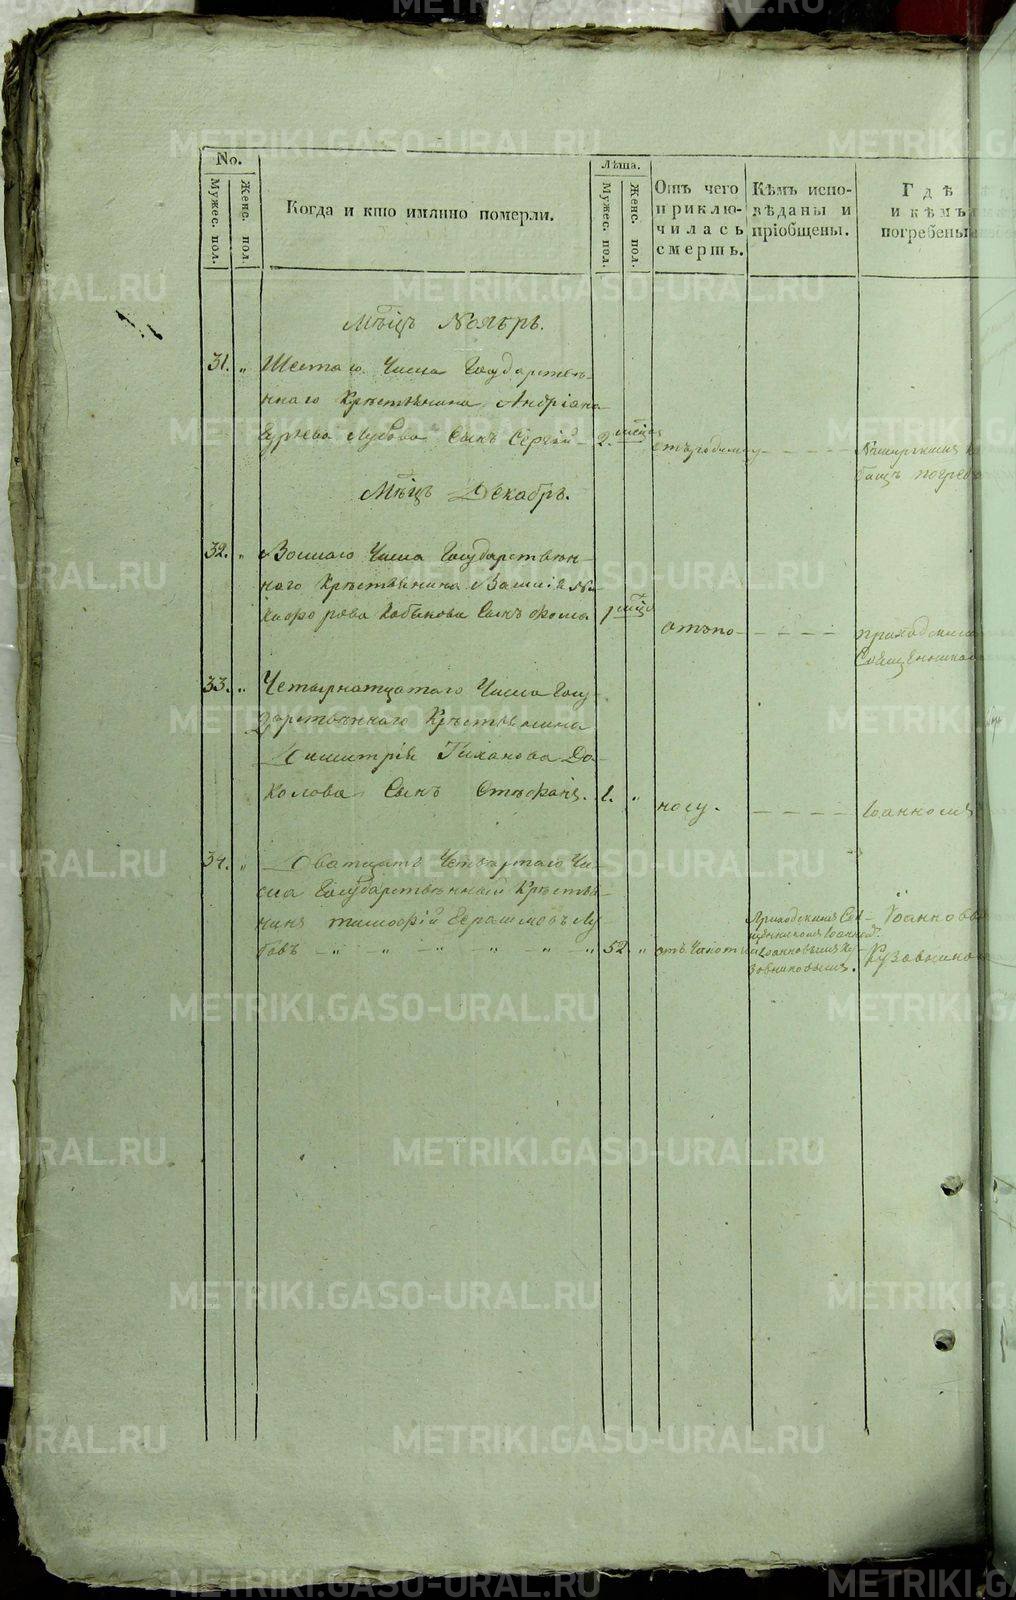 No.
Мужес. пол.
Женс. пол.
Когда и кто имянно померли.
Лѣта.
Мужес. пол.
Женс. пол.
Отъ чего
приклю-
чилась
смерть.
Кѣмъ испо-
вѣданы и
пріобщены.
Гдѣ
и кѣмъ
погребены
Мѣцъ Ноябрь.
31. „ Шестаго Числа Государствен-
ннаго Крестьянина Андріана
Гурьева Лубова Сынъ Сергій 2. мѣсяца
отъ родимцу
погреб
Мѣцъ Декабрь.
32. „ Восмаго Числа Государствѣн-
наго Крѣстьянина Василія Ни-
кифорова Кобылова Сынъ Фома 1
отъ по-
приходскимъ
Священникомъ
33. „ Четырнатцатаго Числа Госу-
дарствѣннаго Крѣстьянина
Димитрія Тиханова До-
колова Сынъ Стефанъ. 1. „
носу.
Іоанномъ
34. „ Дватцать Четвѣртаго Чи-
сла Государствѣнный Крѣстья-
нинъ Тимофій Герасимовъ Лу-
бовъ 52 „ отъ Чахотки
Приходскимъ Свя-
щенникомъ Іоанномъ
Іоанновымъ Ку-
зовниковымъ.
Іоанновы
Кузовников
METRIKI.GASO-URAL.RU